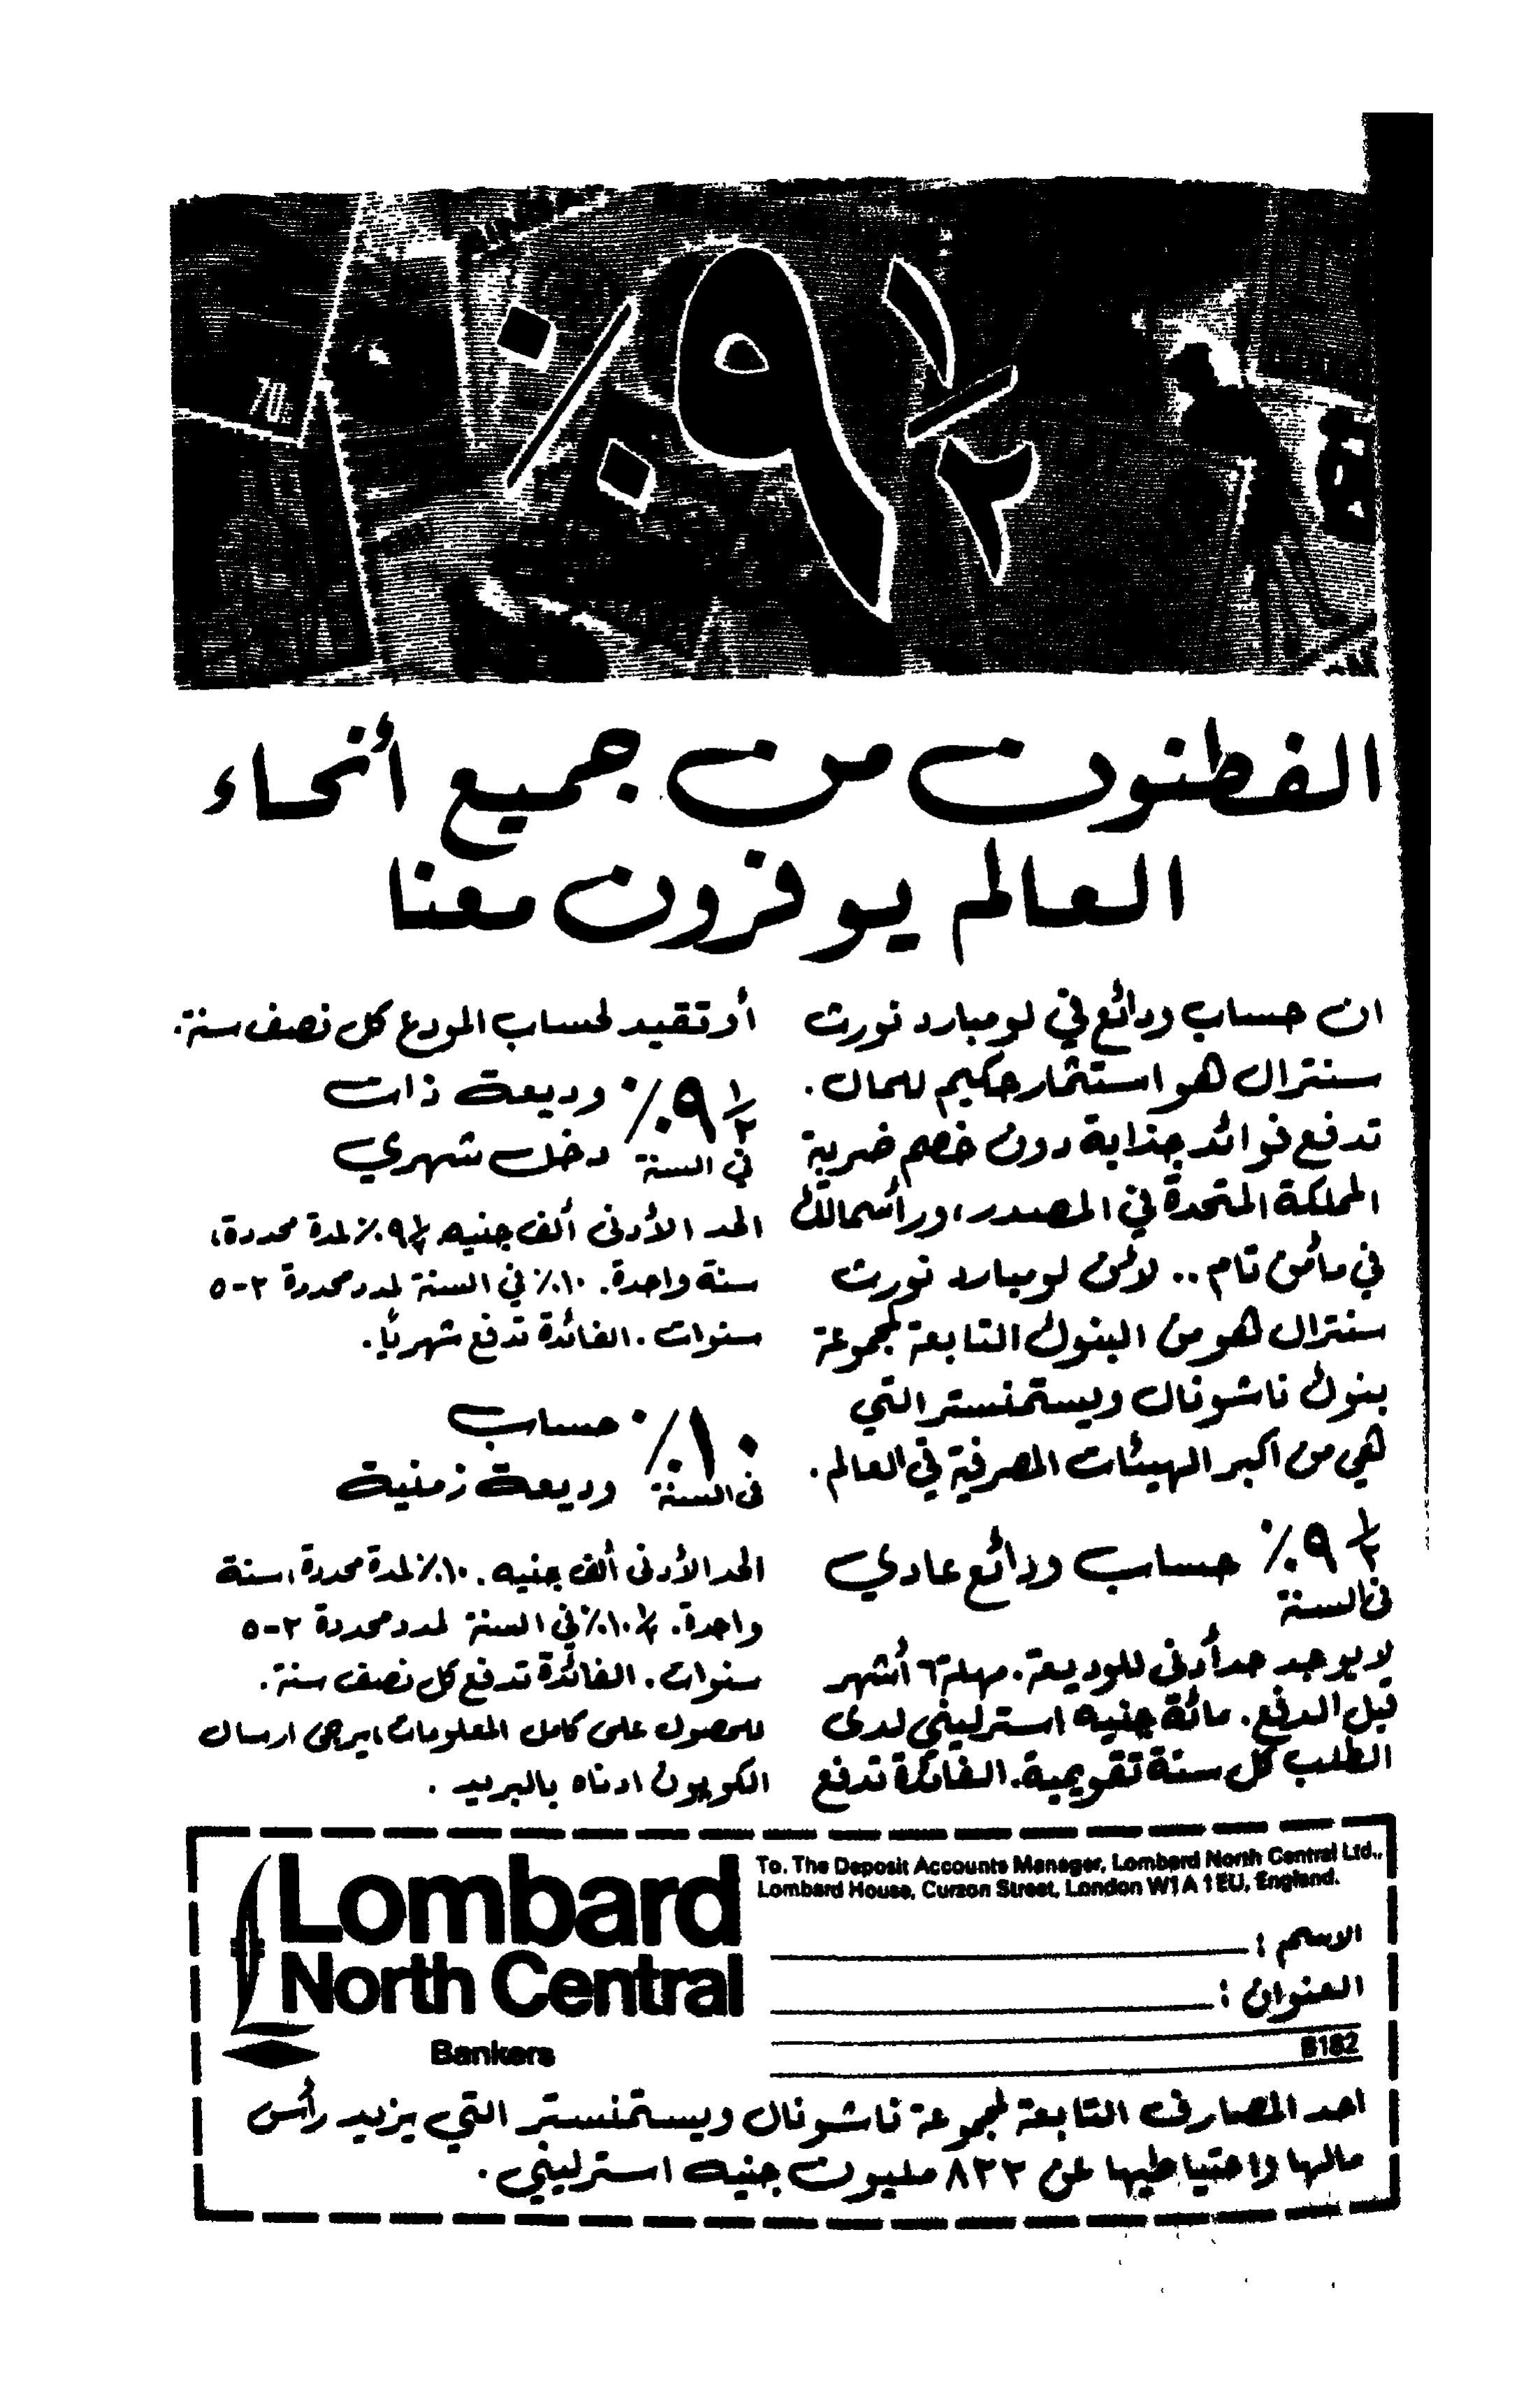 ٩ ١/٢ ٪
70
الفطنون من جميع أنحاء
العالم يوفرون معنا
ان حساب ودائع في لومبارد نورث
سنترال هو استثمار حكيم للمال.
تدفع فوائد جذابة دون خصم ضريبة
المملكة المتحدة في المصدر، ورأسمالك
في مأمن تام.. لأن لومبارد نورث
سنترال هو من البنوك التابعة لمجموعة
بنوك ناشونال ويستمنستر التي
هي من اكبر الهيئات المصرفية في العالم.
٩ ١/٢ ٪ حساب ودائع عادي
في السنة
لا يوجد حد أدنى للوديعة. مهلة ٦ أشهر
قبل الدفع. مائة جنيه استرليني لدى
الطلب كل سنة تقويمية. الفائدة تدفع
أو تقيد لحساب المودع كل نصف سنة.
٩ ١/٢ ٪ وديعة ذات
في السنة دخل شهري
الحد الأدنى ألف جنيه ٩ ١/٢ ٪ لمدة محددة،
سنة واحدة. ١٠٪ في السنة لمدد محددة ٢-٥
سنوات. الفائدة تدفع شهريًا.
١٠٪ حساب
في السنة وديعة زمنية
الحد الأدنى ألف جنيه. ١٠٪ لمدة محددة، سنة
واحدة. ١٠ ١/٢ ٪ في السنة لمدد محددة ٢-٥
سنوات. الفائدة تدفع كل نصف سنة.
للحصول على كامل المعلومات، يرجى ارسال
الكوبون ادناه بالبريد.
Lombard
North Central
Bankers
To. The Deposit Accounts Manager, Lombard North Central Ltd.,
Lombard House, Curzon Street, London W1A 1EU, England.
الاسم :
العنوان :
B182
احد المصارف التابعة لمجموعة ناشونال ويستمنستر التي يزيد رأس
مالها واحتياطيها عن ٨٢٢ مليون جنيه استرليني.